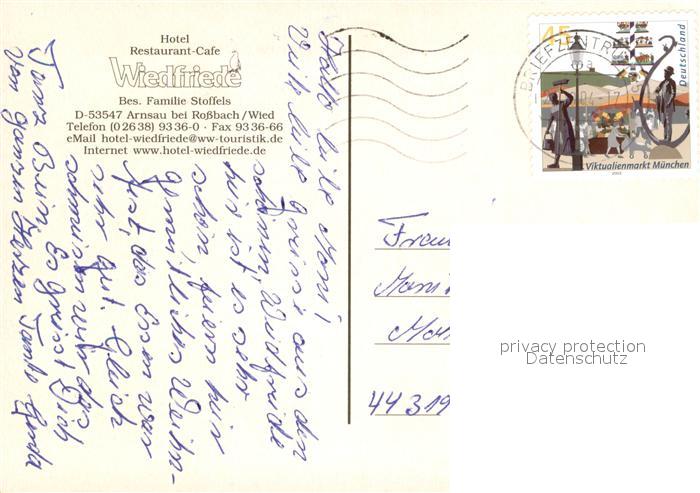 Hotel
Restaurant-Cafe
Wiedfriede
Bes. Familie Stoffels
D-53547 Arnsau bei Roßbach/Wied
Telefon (0 26 38) 93 36-0 · Fax 93 36-66
eMail hotel-wiedfriede@ww-touristik.de
Internet www.hotel-wiedfriede.de
Hallo liebe Moni,
viele liebe Grüsse aus der
schönen Wiedfriede
hier ist es sehr
schön, feiern hier
gemütliches Weihn-
fest, das Essen war
sehr gut. Gleich
schmücken wir das
Tanz Bein. Es grüsst Dich
von ganzem Herzen Tante Gerda
45
Deutschland
Viktualienmarkt München
2003
BRIEFZENTRUM
Frau
Moni
44319
privacy protection
Datenschutz